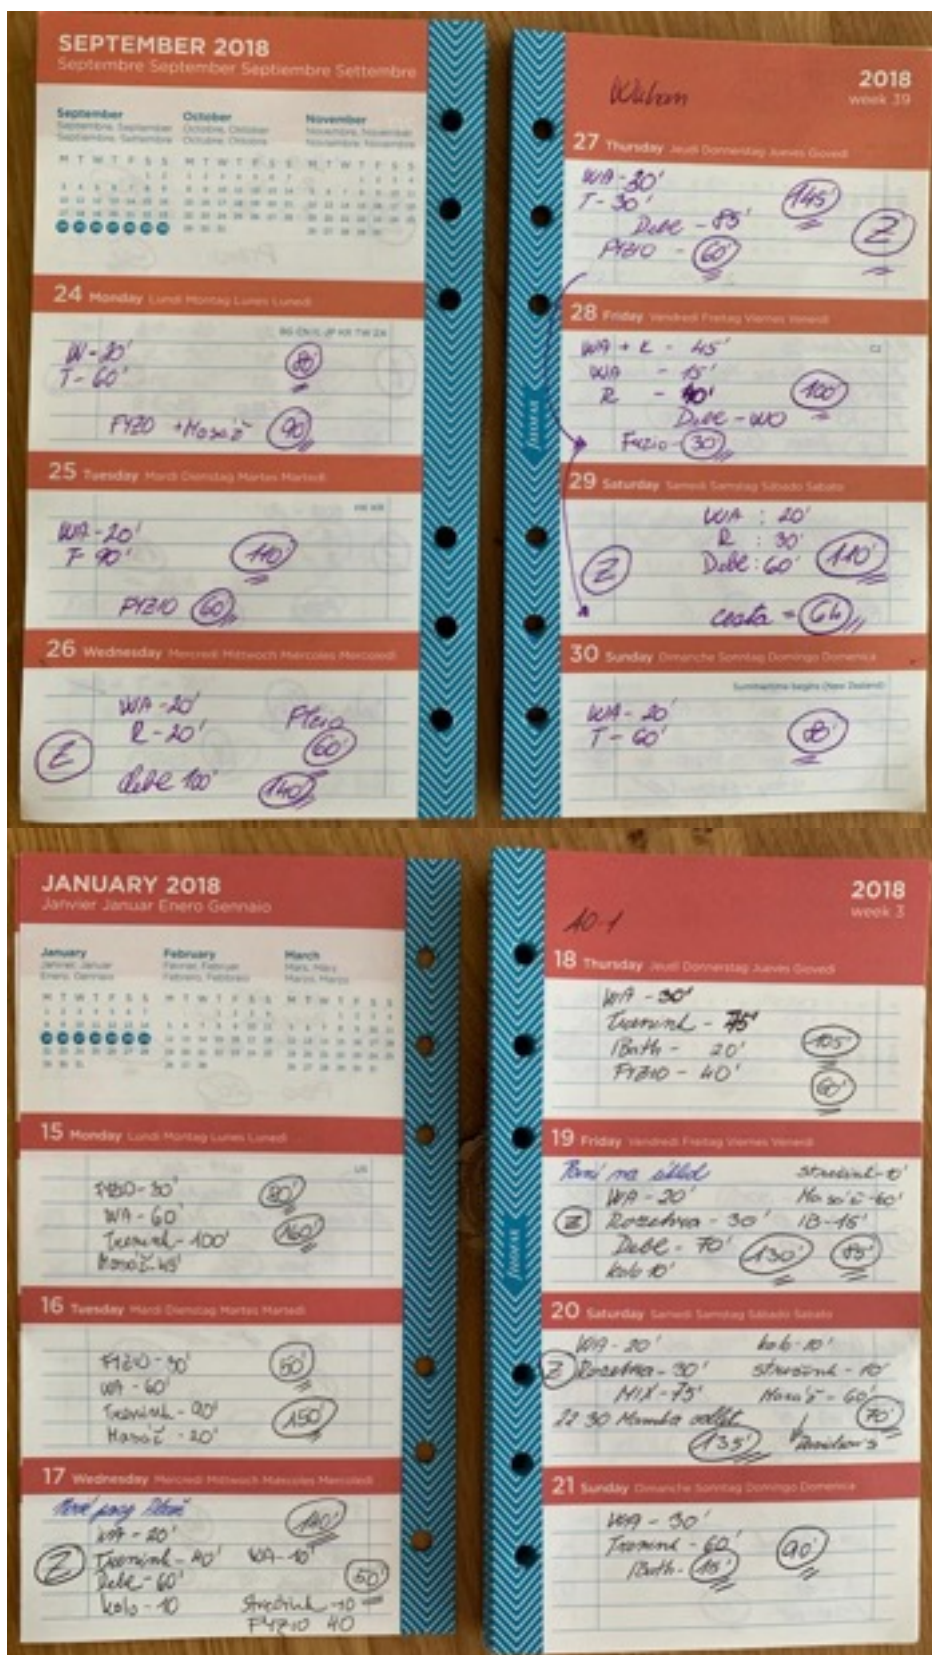 SEPTEMBER 2018
Septembre September Septiembre Settembre
September October November
Septembre, September Octobre, Oktober Novembre, November
Septiembre, Settembre Octubre, Ottobre Noviembre, Novembre
M T W T F S S M T W T F S S M T W T F S S
24 Monday Lundi Montag Lunes Lunedì
BG CN IL JP KR TW ZA
W-20'
T-60'
80'
FYZO + Masáž 90'
25 Tuesday Mardi Dienstag Martes Martedì
WA-20'
F 90'
110'
FYZIO 60'
26 Wednesday Mercredi Mittwoch Miércoles Mercoledì
WA-20'
R-20'
Fyzio
60'
Z
debl 100'
140'
2018
week 39
27 Thursday Jeudi Donnerstag Jueves Giovedì
WA-30'
T-30'
145'
Debl - 85'
Z
FYZIO - 60'
28 Friday Vendredi Freitag Viernes Venerdì
CZ
WA + K - 45'
WA - 15'
R - 40'
100'
Debl - WO
Fyzio - 30'
29 Saturday Samedi Samstag Sábado Sabato
WA : 20'
R : 30'
Debl : 60'
110'
Z
cesta = 6h
30 Sunday Dimanche Sonntag Domingo Domenica
Summertime begins (New Zealand)
WA-20'
T-60'
80'
JANUARY 2018
Janvier Januar Enero Gennaio
January February March
Janvier, Januar Février, Februar Mars, März
Enero, Gennaio Febrero, Febbraio Marzo, Marzo
M T W T F S S M T W T F S S M T W T F S S
15 Monday Lundi Montag Lunes Lunedì
US
FYZIO-30'
80'
WA-60'
Trenink-100'
160'
Masáž-45'
16 Tuesday Mardi Dienstag Martes Martedì
FYZIO-30'
50'
WA-60'
Trenink-90'
150'
Masáž-20'
17 Wednesday Mercredi Mittwoch Miércoles Mercoledì
WA-20'
140'
Z
Trenink-40' WA-10'
Debl-60'
50'
kolo-10 Strečink-10
FYZIO 40
2018
week 3
AO-1
18 Thursday Jeudi Donnerstag Jueves Giovedì
WA-30'
Trenink-75'
IBath - 20'
105'
FYZIO - 40'
60'
19 Friday Vendredi Freitag Viernes Venerdì
Strečink-10'
WA-20' Masáž-60'
Z
Rozehra-30' IB-15'
Debl-70'
130'
85'
kolo 10'
20 Saturday Samedi Samstag Sábado Sabato
WA-20' kolo-10'
Z
Rozehra-30' Strečink-10'
MIX-75' Masáž-60'
22 30 Mamba
70'
135'
21 Sunday Dimanche Sonntag Domingo Domenica
WA-30'
Trenink-60'
90'
IBath-15'